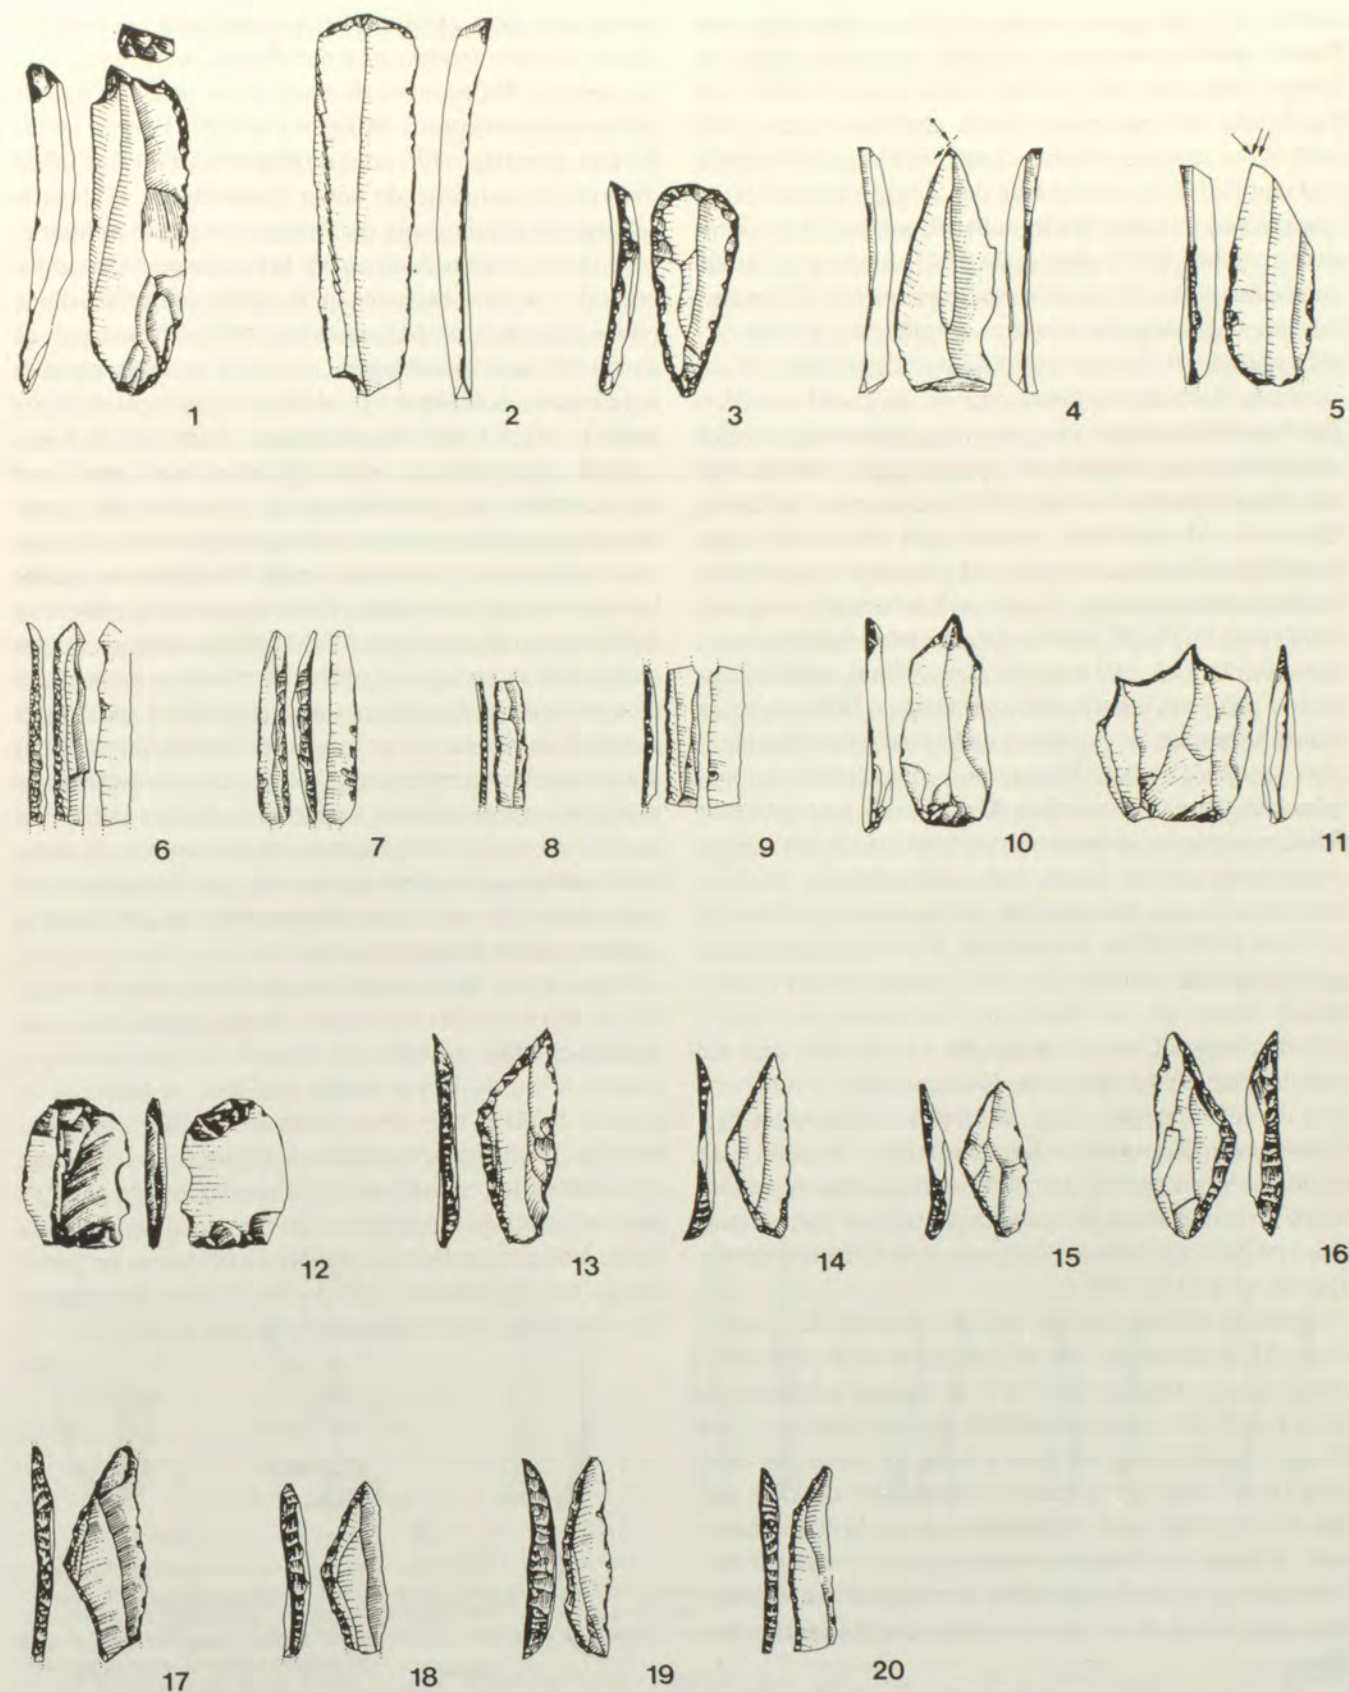 1 2 3 4 5
6 7 8 9 10 11
12 13 14 15 16
17 18 19 20